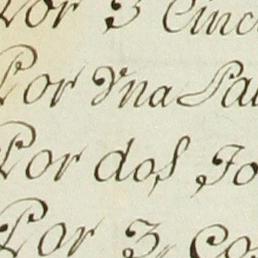 Por 3 Cinc
Por Vna Pal
Por dos Jo
Por 3, Co